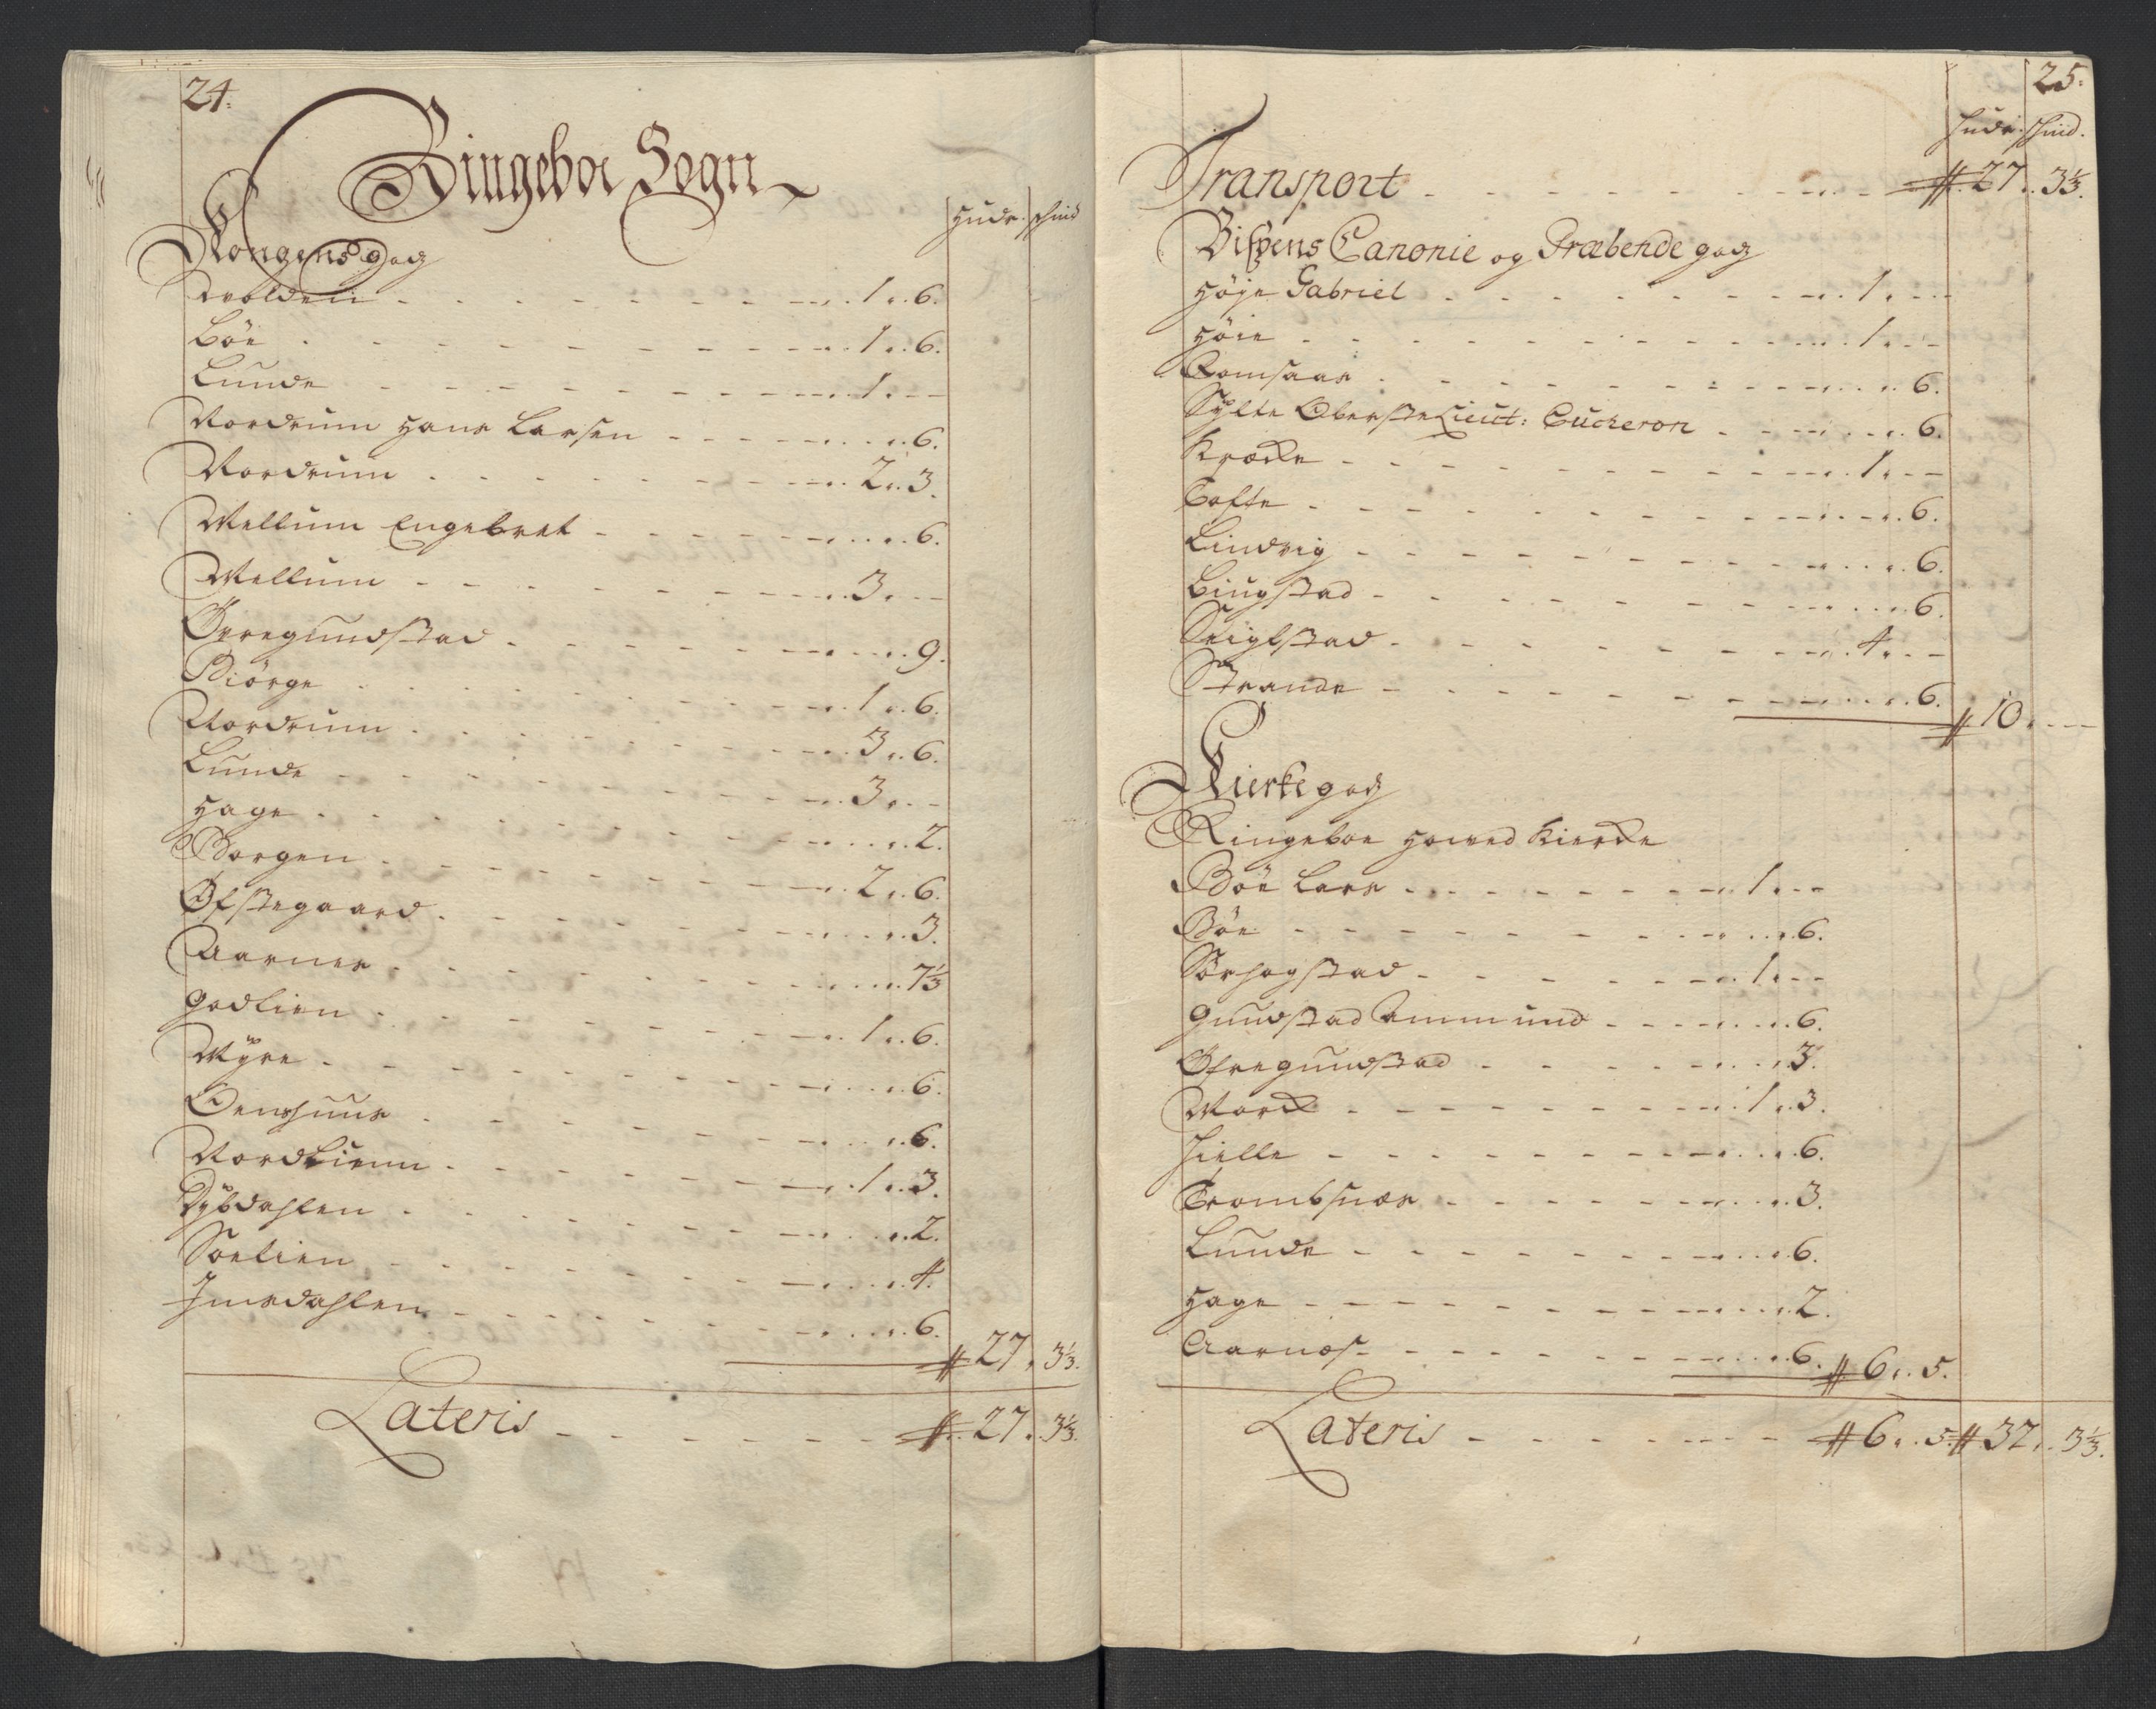 24.
Ringeboe Sogn
Hude. schind
Kongens godz
Volden - - 1 .. 6.
Böe - - 1 .. 6.
Lunde - - 1. - -
Nordrum Hans Larsen - - 6.
Nordrum - - 2 .. 3.
Mellum Engebret - - 6.
Mellum - - 3. - -
Øvregundstad - - 9.
Biörge - - 1 .. 6.
Nordrum - - 3 .. 6.
Lunde - - 3. - -
Hage - - 2.
Borgen - - 2 .. 6.
Øfstegaard - - 3.
Aarnes - - 7⅓
Godlien - - 1 .. 6.
Myre - - 6.
Oenshuus - - 6.
Nordlienn - - 1 .. 3.
Dybdahlen - - 2.
Soelien - - 4.
Imsdahlen - - 6.
27. 3⅓.
Lateris - - 27. 3⅓.
25.
Hude. schind.
Transport - - 27. 3⅓.
Bispens Canonie og Præbende godz
Höje Gabriel - - 1. - -
Höie - - 1. - -
Romsaas - - 6.
Sylte Oberste Lieut: Cucheron - - 6.
Kræke - - 1. - -
Tofte - - 6.
Lindvig - - 6.
Biugstad - - 6.
Seiglstad - - 4. - -
Strande - - 6.
10. - -
Kierke godz
Ringeboe Hoved Kierke
Böe Lars - - 1. - -
Böe - - 6.
Sörhogstad - - 1. - -
Gundstad Ammund - - 6.
Øfregundstad - - 3.
Mock - - 1 .. 3.
Hielle - - 6.
Trombsnæs - - 3.
Lunde - - 6.
Hage - - 2.
Aarnæs - - 6. 6 .. 5.
Lateris - - 6 .. 5. 37 .. 3⅓.